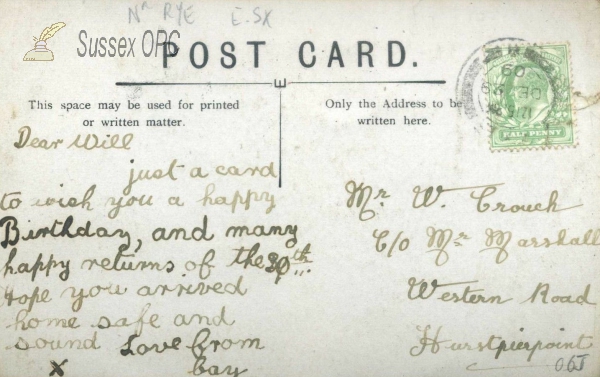 Nr RYE E.SX
Sussex OPC
POST CARD.
This space may be used for printed
or written matter.
Only the Address to be
written here.
HALFPENNY
Dear Will
just a card
to wish you a happy
Birthday, and many
happy returns of the 30th
Hope you arrived
home safe and
sound Love from
x
Mr. W. Crouch
C/o Mr Marshall
Western Road
Hurstpierpoint